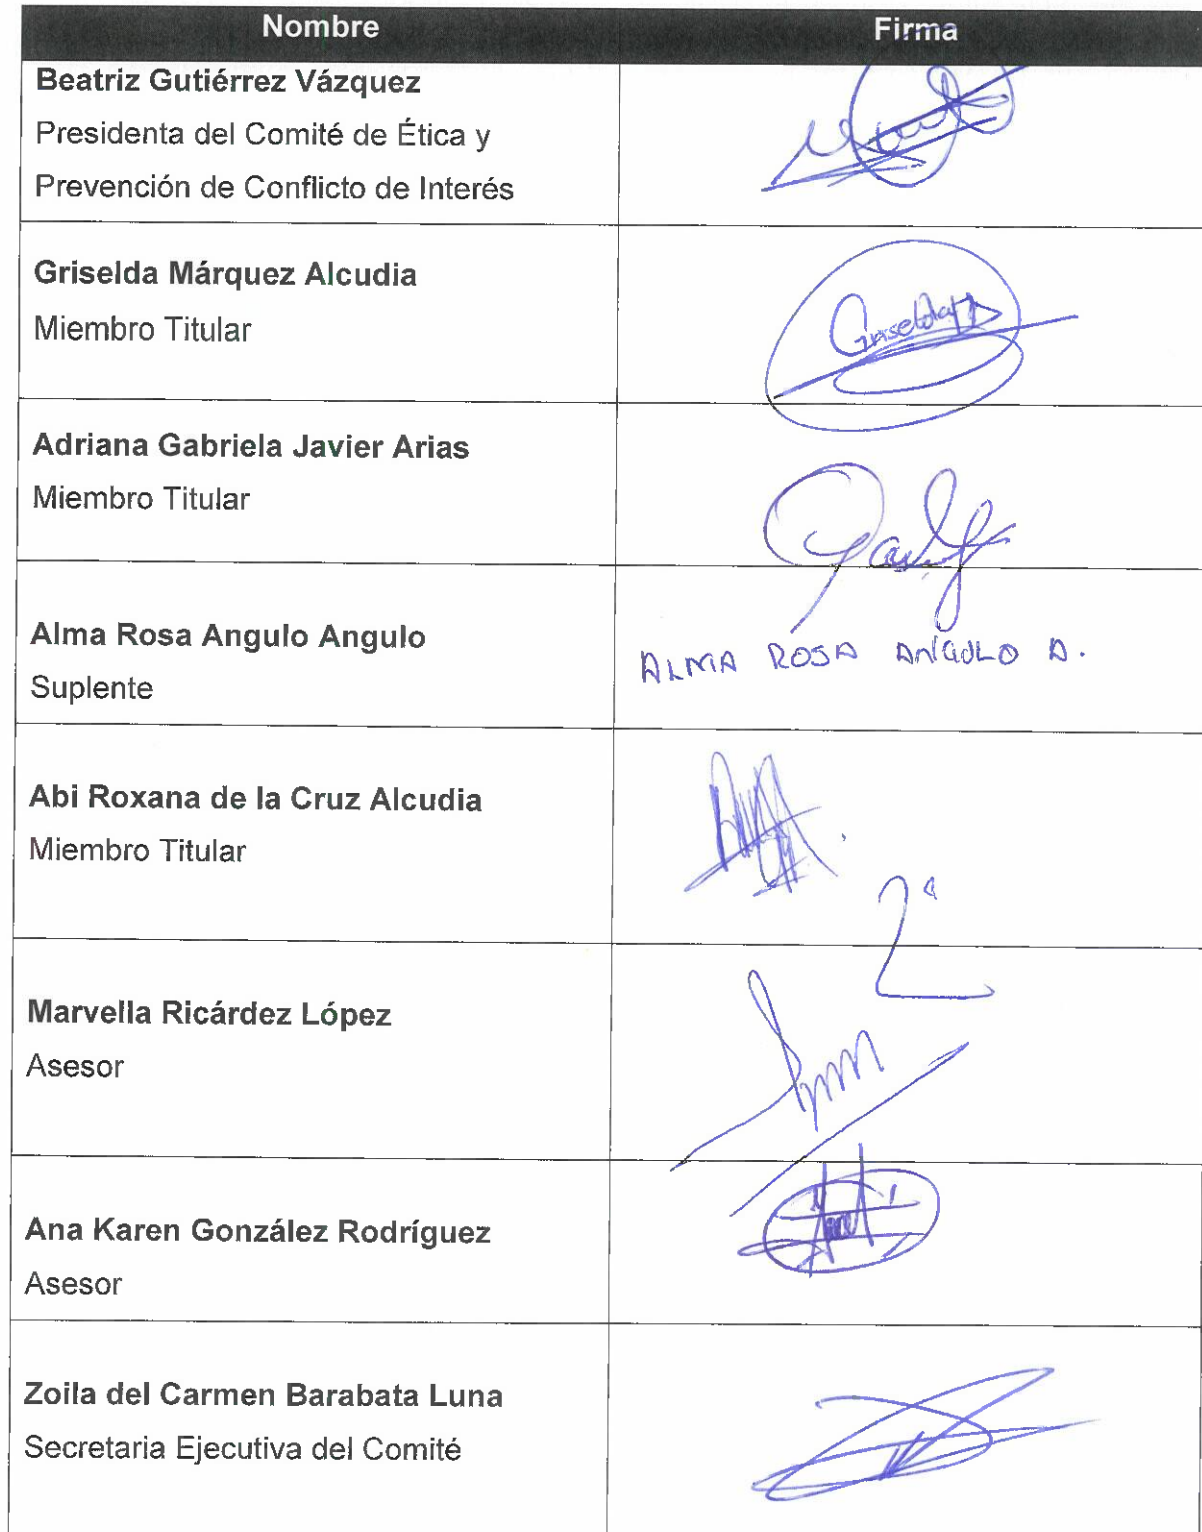 Nombre Firma
Beatriz Gutiérrez Vázquez
Presidenta del Comité de Ética y
Prevención de Conflicto de Interés
Griselda Márquez Alcudia
Miembro Titular
Griselda
Adriana Gabriela Javier Arias
Miembro Titular
Alma Rosa Angulo Angulo
Suplente
ALMA ROSA ANGULO A.
Abi Roxana de la Cruz Alcudia
Miembro Titular
Marvella Ricárdez López
Asesor
Ana Karen González Rodríguez
Asesor
Zoila del Carmen Barabata Luna
Secretaria Ejecutiva del Comité